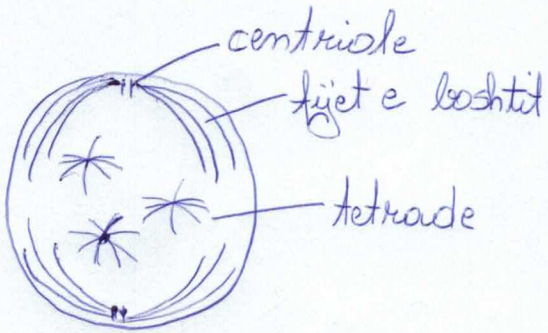 centriole
fijet e boshtit
tetrade